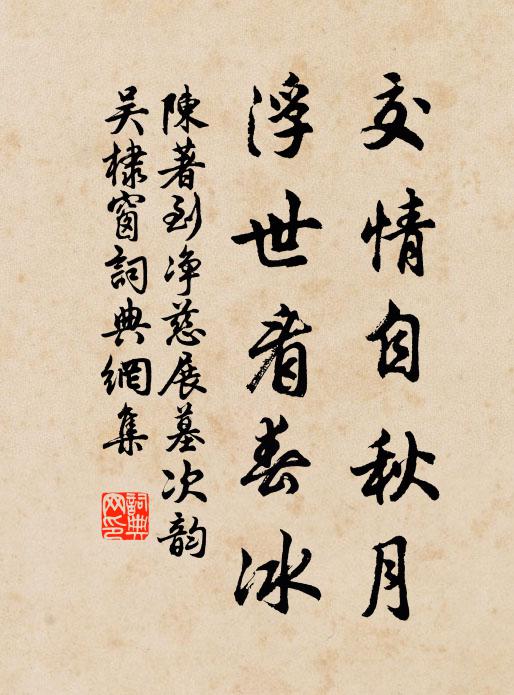 交情自秋月
浮世看春冰
陳著到净慈展墓次韵
吴棣窗詞典網集
詞典网印